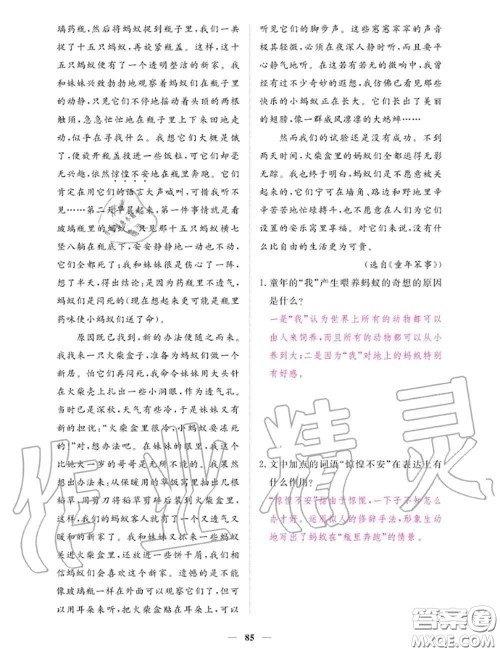 璃药瓶，然后将蚂蚁捉起放到瓶子里，我们一共捉
了十五只蚂蚁，再旋紧瓶盖。这样，这十
五只蚂蚁便有了一个透明整洁的新家。我
和妹妹兴致勃勃地观察着蚂蚁在瓶子里
的动静，只见它们不停地摇动着头顶的两根
触须，急急忙忙地在瓶子里上下来回地走
动，似乎在寻找什么。我想它们大概是饿
了，便旋开瓶盖投进一些饭粒，可它们却毫
无兴趣，依然惊惶不安地在瓶里奔跑。它们
肯定在用它们的语言大声喊叫，可惜我听不
见……第二天早晨起来，第一件事情就是看
玻璃瓶里的蚂蚁，只见那十五只蚂蚁横七
竖八躺在瓶底下，安安静静地一动也不动，
它们全都死了；我和妹妹很是伤心了一阵，
想了半天，得出结论：是因为瓶子里不透气，
蚂蚁是闷死的（现在想起来更可能是瓶里
药味使小蚂蚁们送了命）。
原因既已找到，新的办法便随之而来。
我找来一只火柴盒，准备为蚂蚁们做一个新
居。怕它们再闷死，我命令妹妹用大头针
在火柴壳上扎出一些小洞眼，作为透气孔。
当时已是深秋，天气有些冷，于是妹妹又有
新的担忧：“火柴盒里很冷，小蚂蚁要冻死
的！”对，想办法吧。在妹妹的眼里，我这个
比她大一岁的哥哥是无所不能的。我果然
想出办法来：从保暖用的草饭窝里抽出几根
稻草，用剪刀将稻草剪碎后装到火柴盒里，
这样，我们的蚂蚁客人就有了一个又透气又
暖和的新家了。我和妹妹又抓来一些蚂蚁
关进火柴盒里，还放进去一些饼干屑，我们
相信蚂蚁们会喜欢这个新家。遗憾的是不能
像玻璃瓶一样在外面可以观察它们了，但可
以用耳朵来听，把火柴盒贴在耳朵上，可以
听见它们的脚步声。这些窸窸窣窣的声音
极其轻微，必须在夜深人静时听，而且要平
心静气地听。在这若有若无的微响中，我曾
经有过不少奇妙的遐想，我仿佛已看见那些
快乐的小蚂蚁正在长大。它们长出了美丽
的翅膀，像一群威风凛凛的大蟋蟀……
然而我们的试验还是没有成功。不到
两天时间，火柴盒里的蚂蚁们全都逃得无影
无踪。我也终于明白，蚂蚁们是不愿意被关
起来的，它们宁可在墙角、路边和野地里辛
辛苦苦地忙碌搏斗，也不愿意享受在人们为它们
设置的安乐窝里享福。对它们来说，没有什
么比自由的生活更为可贵。
（选自《童年笨事》）
1.童年的“我”产生喂养蚂蚁的奇想的原因
是什么？
一是“我”认为世界上所有的动物都可以
由人来饲养，而且所有的动物都可以从小
养到大；二是因为“我”对地上的蚂蚁特别
有好感。
2.文中加点的词语“惊惶不安”在表达上有
什么作用？
“惊惶不安”指由于惊慌，一下子不知怎么
办才好。运用拟人的修辞手法，形象生动
地写出了蚂蚁在“瓶里奔跑”的情景。
85
作业精灵